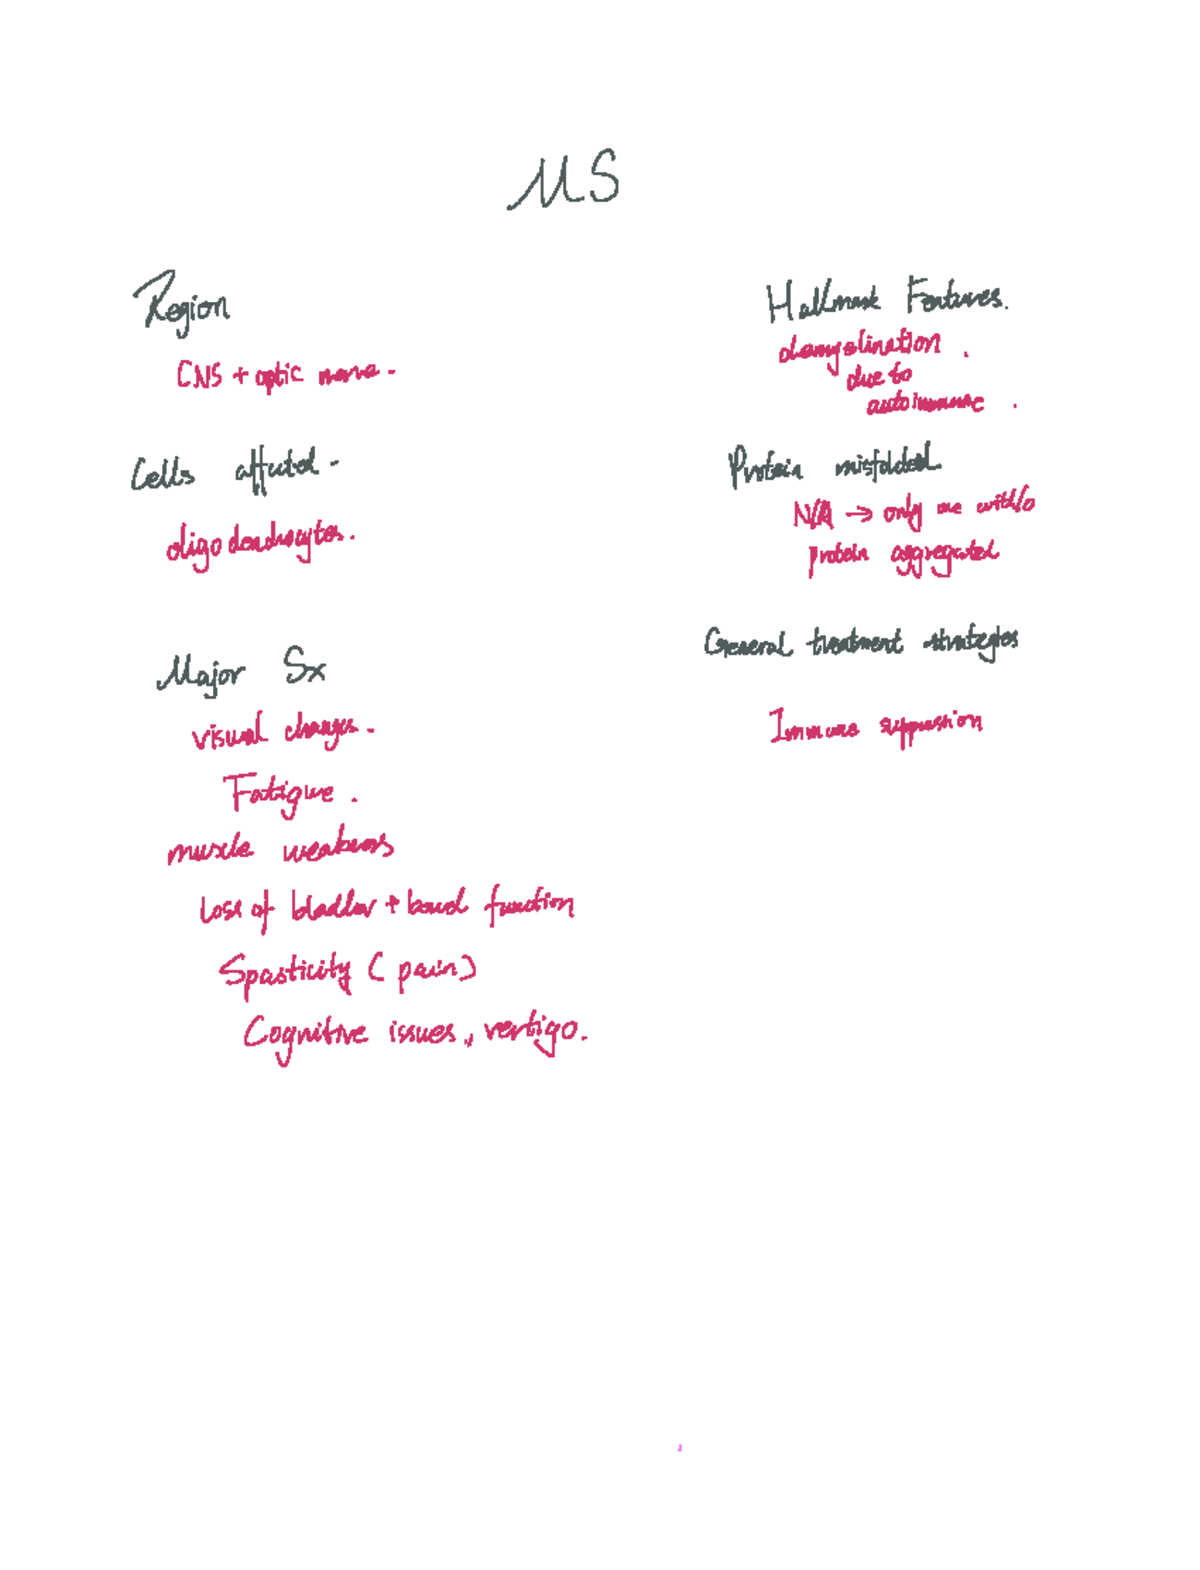 MS
Region
CNS + optic nerve.
Cells affected.
oligodendrocytes.
Major Sx
visual changes.
Fatigue.
muscle weakness
Loss of bladder + bowel function
Spasticity (pain)
Cognitive issues, vertigo.
Hallmark Features.
demyelination.
due to
autoimmune.
Protein misfolded.
N/A → only one with/o
protein aggregated
General treatment strategies
Immune suppression